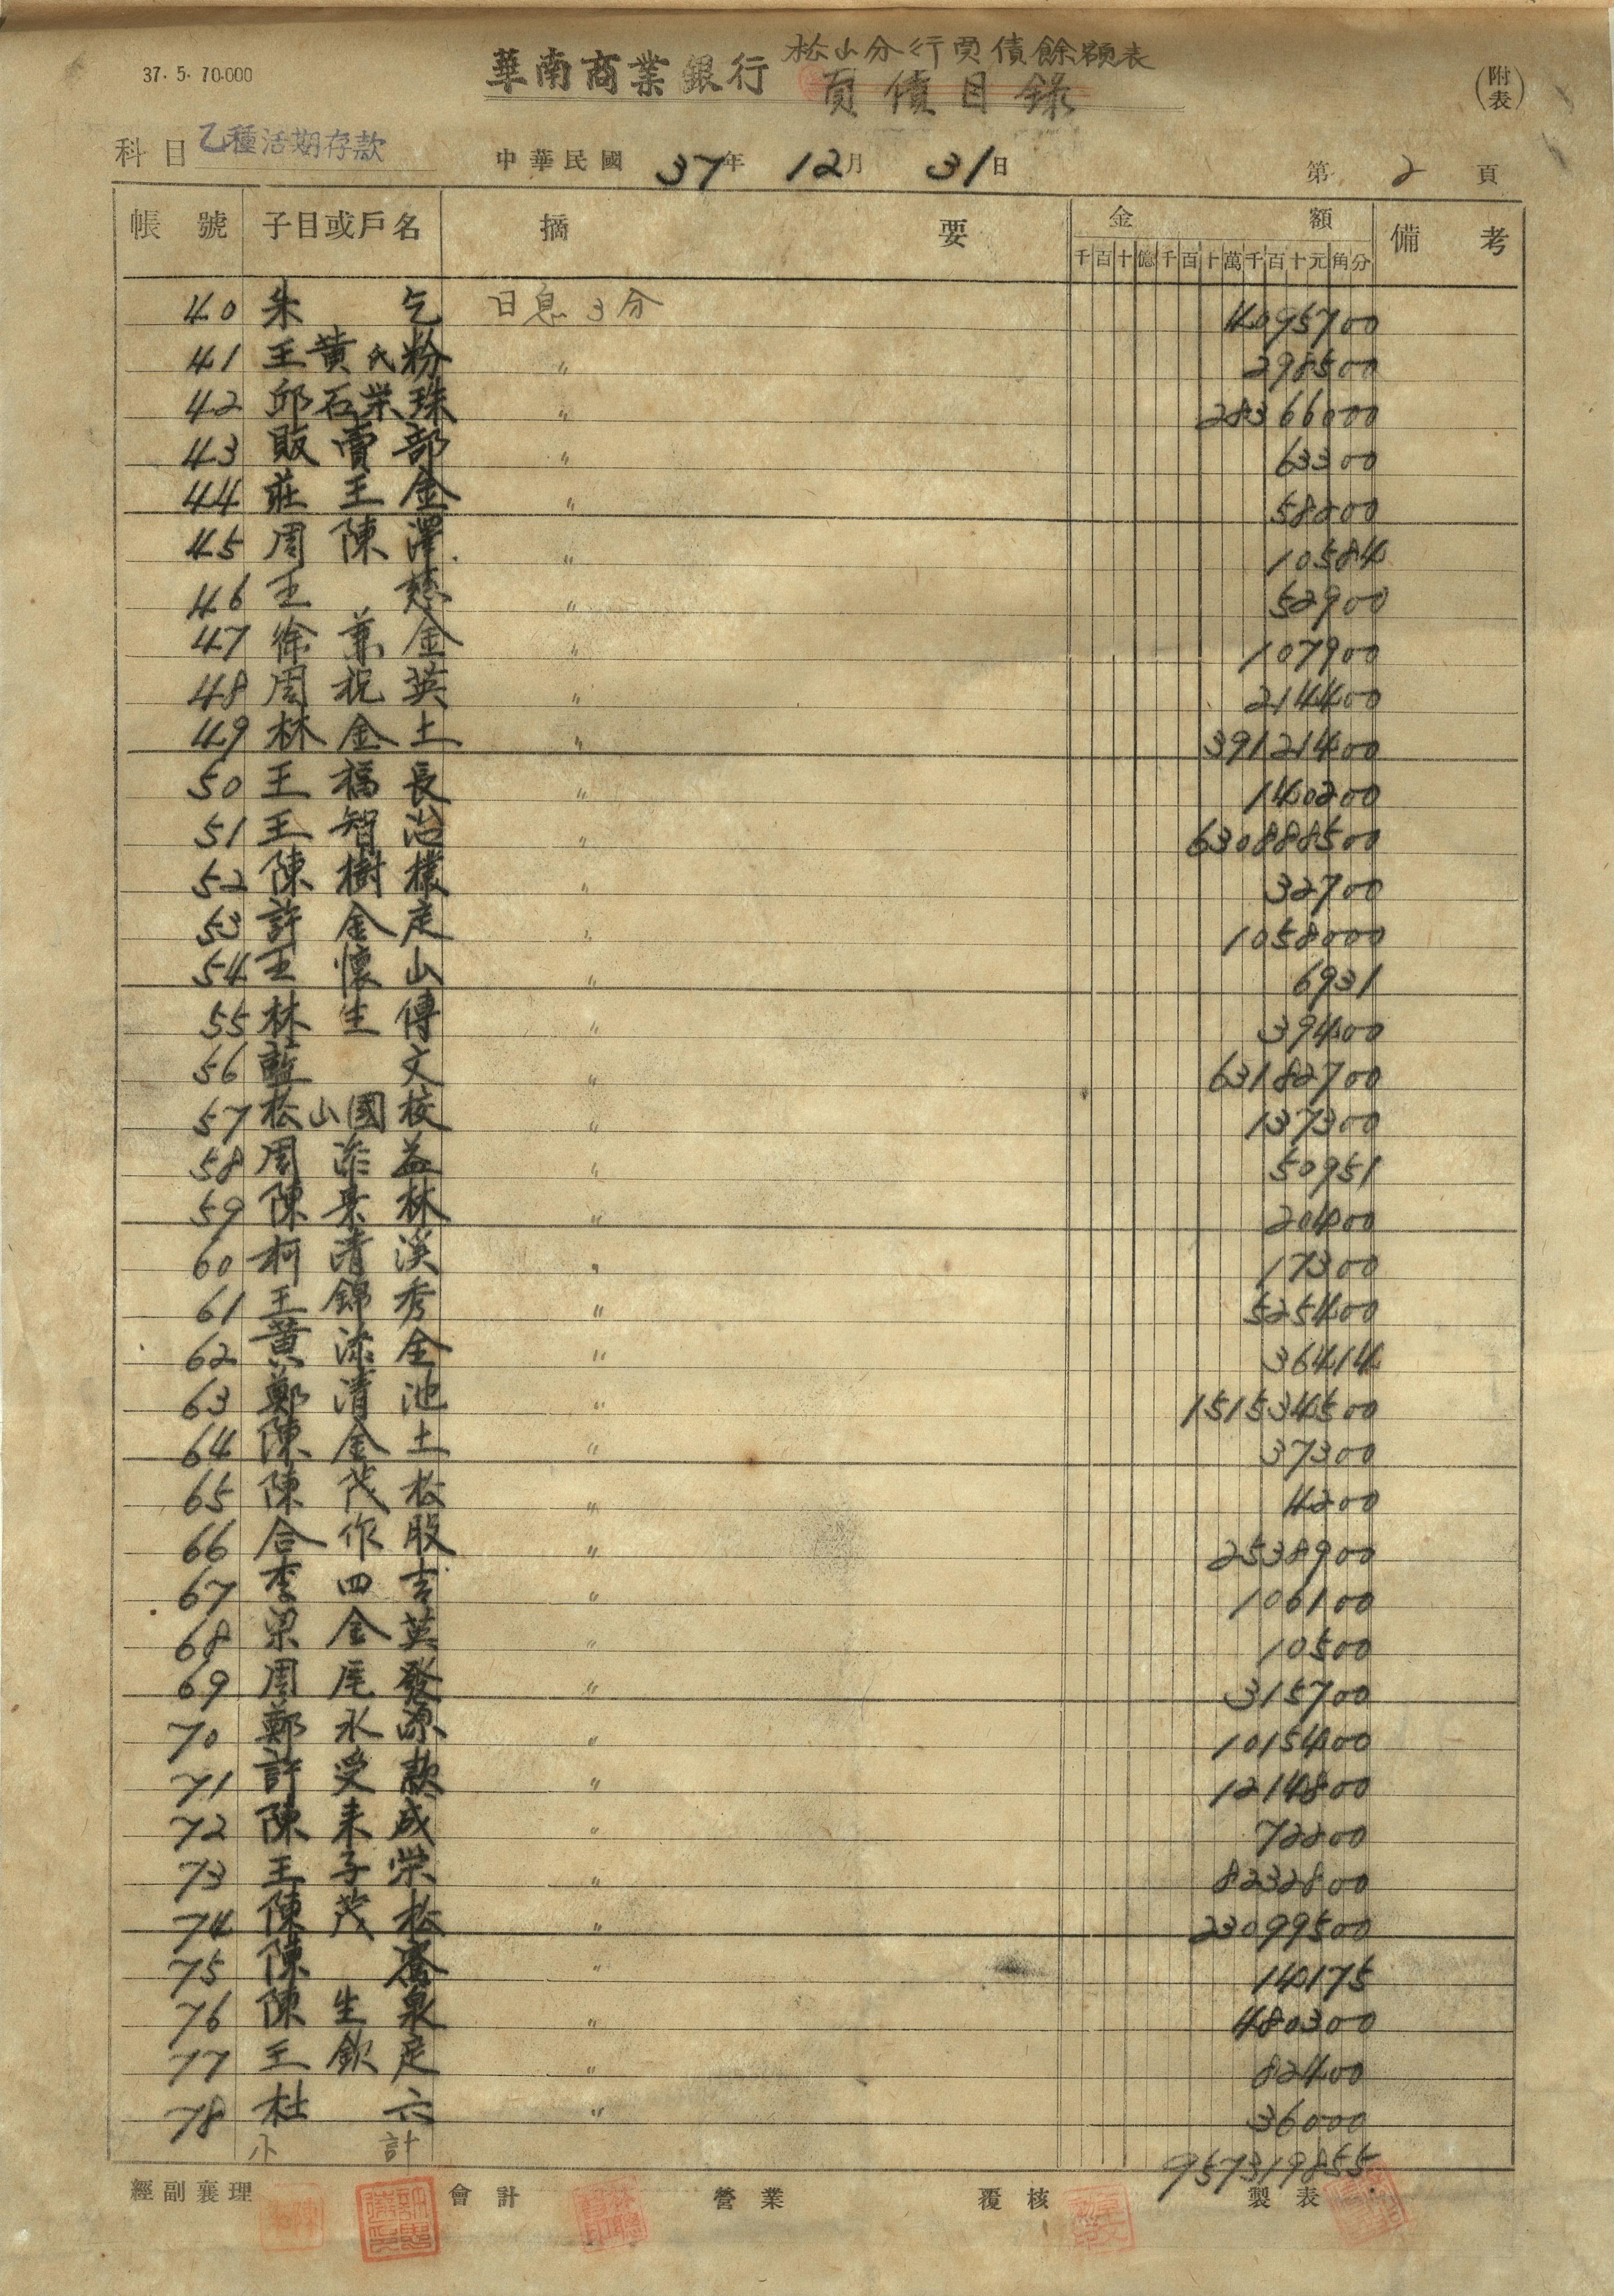 37. 5. 70.000
華南商業銀行 松山分行負債餘額表
負債目錄
(附表)
科目 乙種活期存款 中華民國 37年 12月 31日 第 2 頁
帳號 子目或戶名 摘要 金額 備考
千百十億千百十萬千百十元角分
40 朱乞 日息3分 4095700
41 王黃氏粉 〃 298500
42 邱石栄珠 〃 28366000
43 販賣部 〃 63300
44 莊王金 〃 58200
45 周陳澤 〃 10584
46 王慈 〃 52900
47 徐葉金 〃 107900
48 周祝英 〃 214400
49 林金土 〃 39121400
50 王福長 〃 140200
51 王智治 〃 630888500
52 陳樹樸 〃 32700
53 許金定 〃 1058000
54 王懷山 〃 6931
55 林生傳 〃 39400
56 藍文 〃 63182700
57 松山國校 〃 137300
58 周添益 〃 50951
59 陳泉林 〃 20400
60 柯清溪 〃 17300
61 王錦秀 〃 525400
62 黃添全 〃 36414
63 鄭清池 〃 151534500
64 陳金土 〃 37300
65 陳茂松 〃 4200
66 合作股 〃 2538900
67 李四吉 〃 106100
68 梁金英 〃 10500
69 周尾發 〃 315700
70 鄭水源 〃 1015400
71 許受款 〃 1214800
72 陳来成 〃 72200
73 王子栄 〃 8232800
74 陳茂松 〃 23099500
75 陳 〃 14175
76 陳生泉 〃 480300
77 王欽定 〃 82400
78 杜六 〃 36000
小計 957319855
經副襄理 會計 營業 覆核 製表